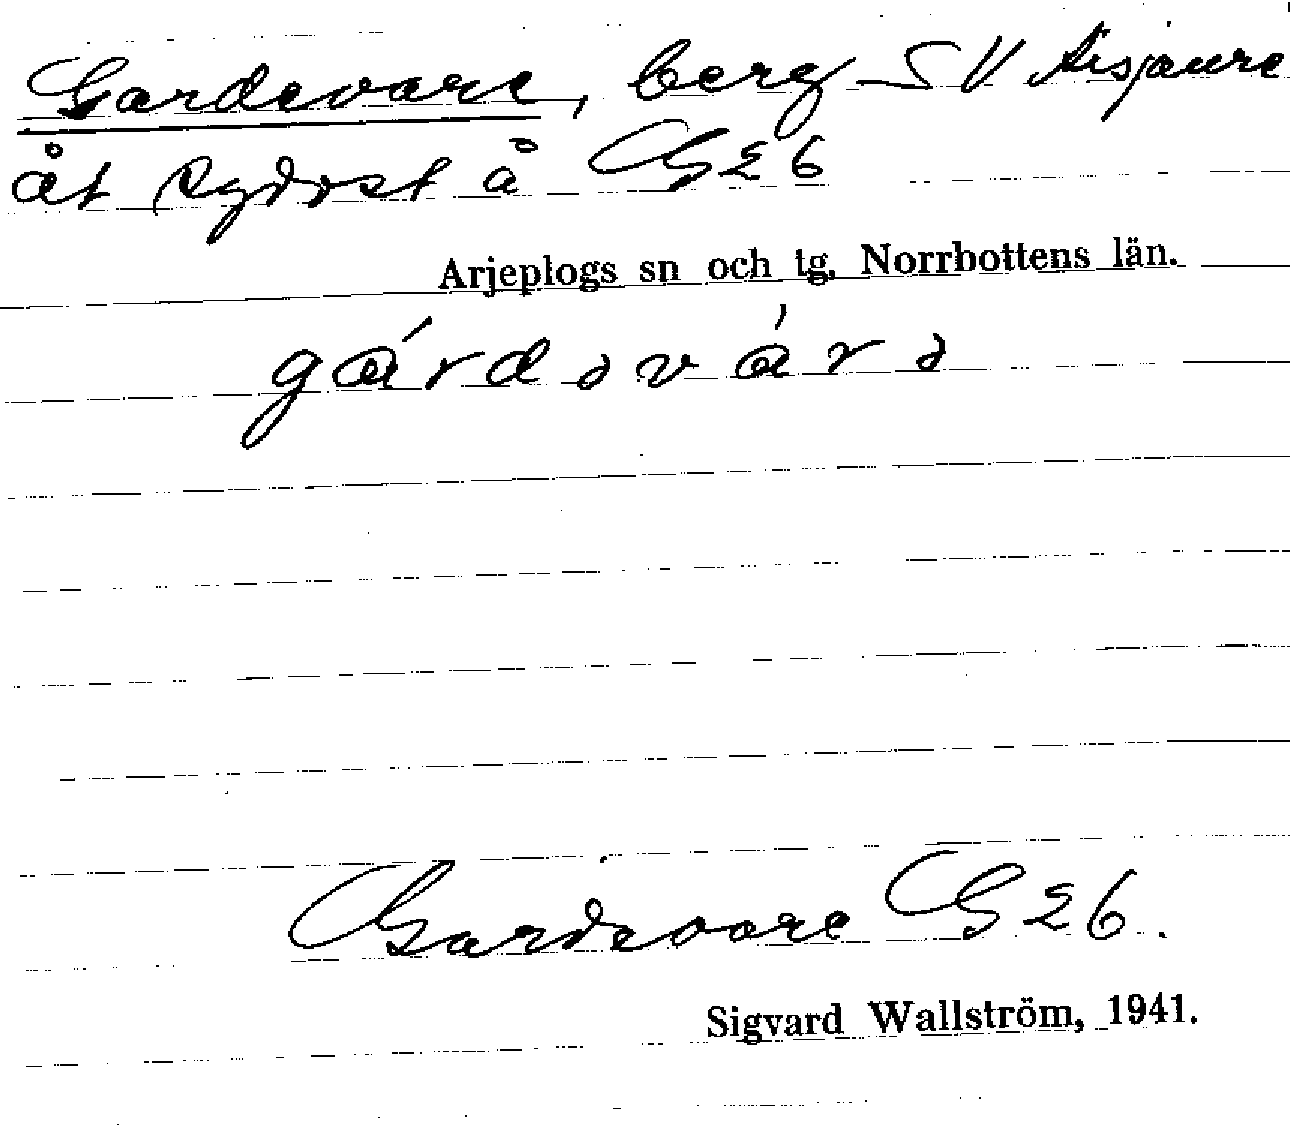 Gardevare, berg SV Aisjaure
åt sydost å G26
Arjeplogs sn och tg, Norrbottens län.
gárdəvárə
Gardevare G 26.
Sigvard Wallström, 1941.